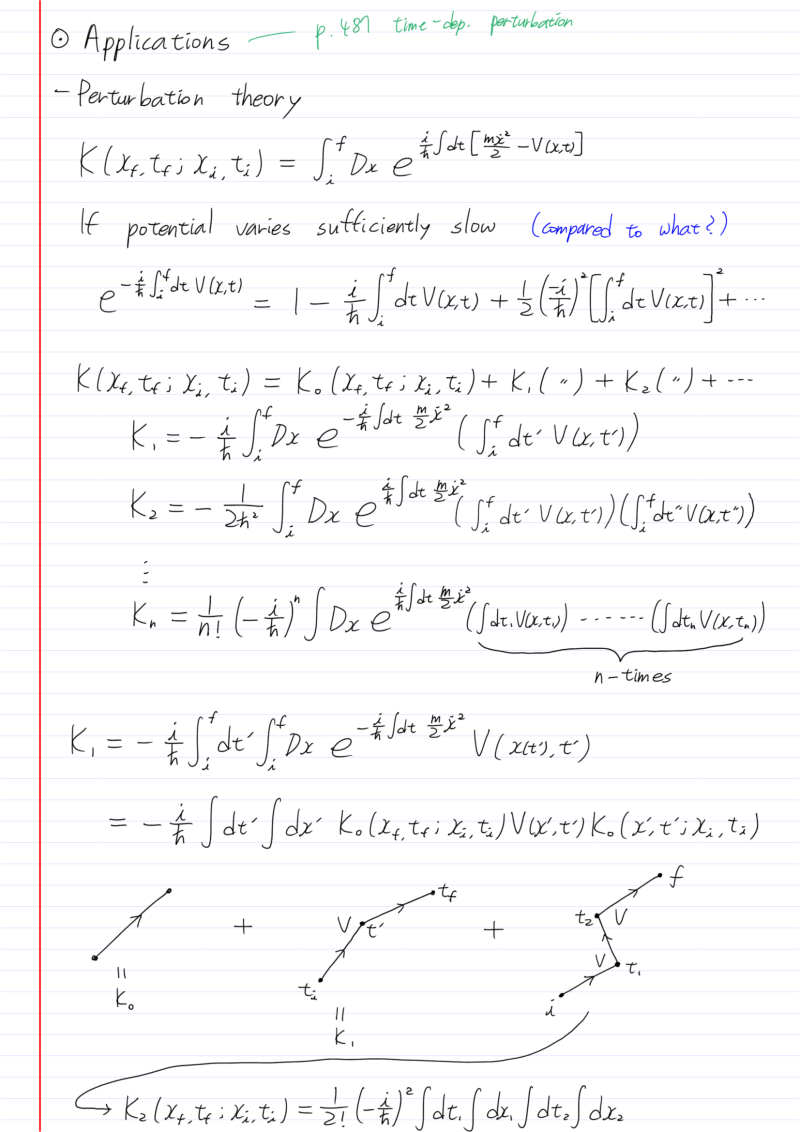 ⊙ Applications — p. 487 time-dep. perturbation
- Perturbation theory
K(x_f, t_f ; x_i, t_i) = ∫_i^f Dx e^{i/ħ ∫dt [mẋ²/2 - V(x,t)]}
If potential varies sufficiently slow (compared to what?)
e^{-i/ħ ∫_i^f dt V(x,t)} = 1 - i/ħ ∫_i^f dt V(x,t) + 1/2 (-i/ħ)² [∫_i^f dt V(x,t)]² + ⋯
K(x_f, t_f ; x_i, t_i) = K_0(x_f, t_f ; x_i, t_i) + K_1(〃) + K_2(〃) + ⋯
K_1 = - i/ħ ∫_i^f Dx e^{-i/ħ ∫dt m/2 ẋ²} (∫_i^f dt′ V(x,t′))
K_2 = - 1/2ħ² ∫_i^f Dx e^{i/ħ ∫dt m/2 ẋ²} (∫_i^f dt′ V(x,t′))(∫_i^f dt″ V(x,t″))
⋮
K_n = 1/n! (-i/ħ)^n ∫Dx e^{i/ħ ∫dt m/2 ẋ²} (∫dt_1 V(x,t_1)) ⋯⋯ (∫dt_n V(x,t_n))
n-times
K_1 = - i/ħ ∫_i^f dt′ ∫_i^f Dx e^{-i/ħ ∫dt m/2 ẋ²} V(x(t′), t′)
= - i/ħ ∫dt′ ∫dx′ K_0(x_f, t_f ; x_i, t_i) V(x′, t′) K_0(x′, t′ ; x_i, t_i)
+ V t′ t_f + t_2 V f
V t_1
t_i i
= K_0
= K_1
→ K_2(x_f, t_f ; x_i, t_i) = 1/2! (-i/ħ)² ∫dt_1 ∫dx_1 ∫dt_2 ∫dx_2